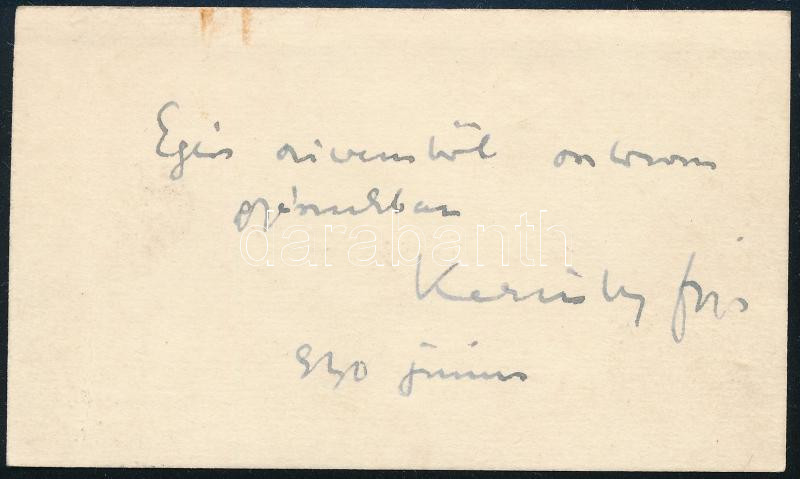 Egész szivemből osztozom
gyászukban
Kernstok
930 június
darabanth